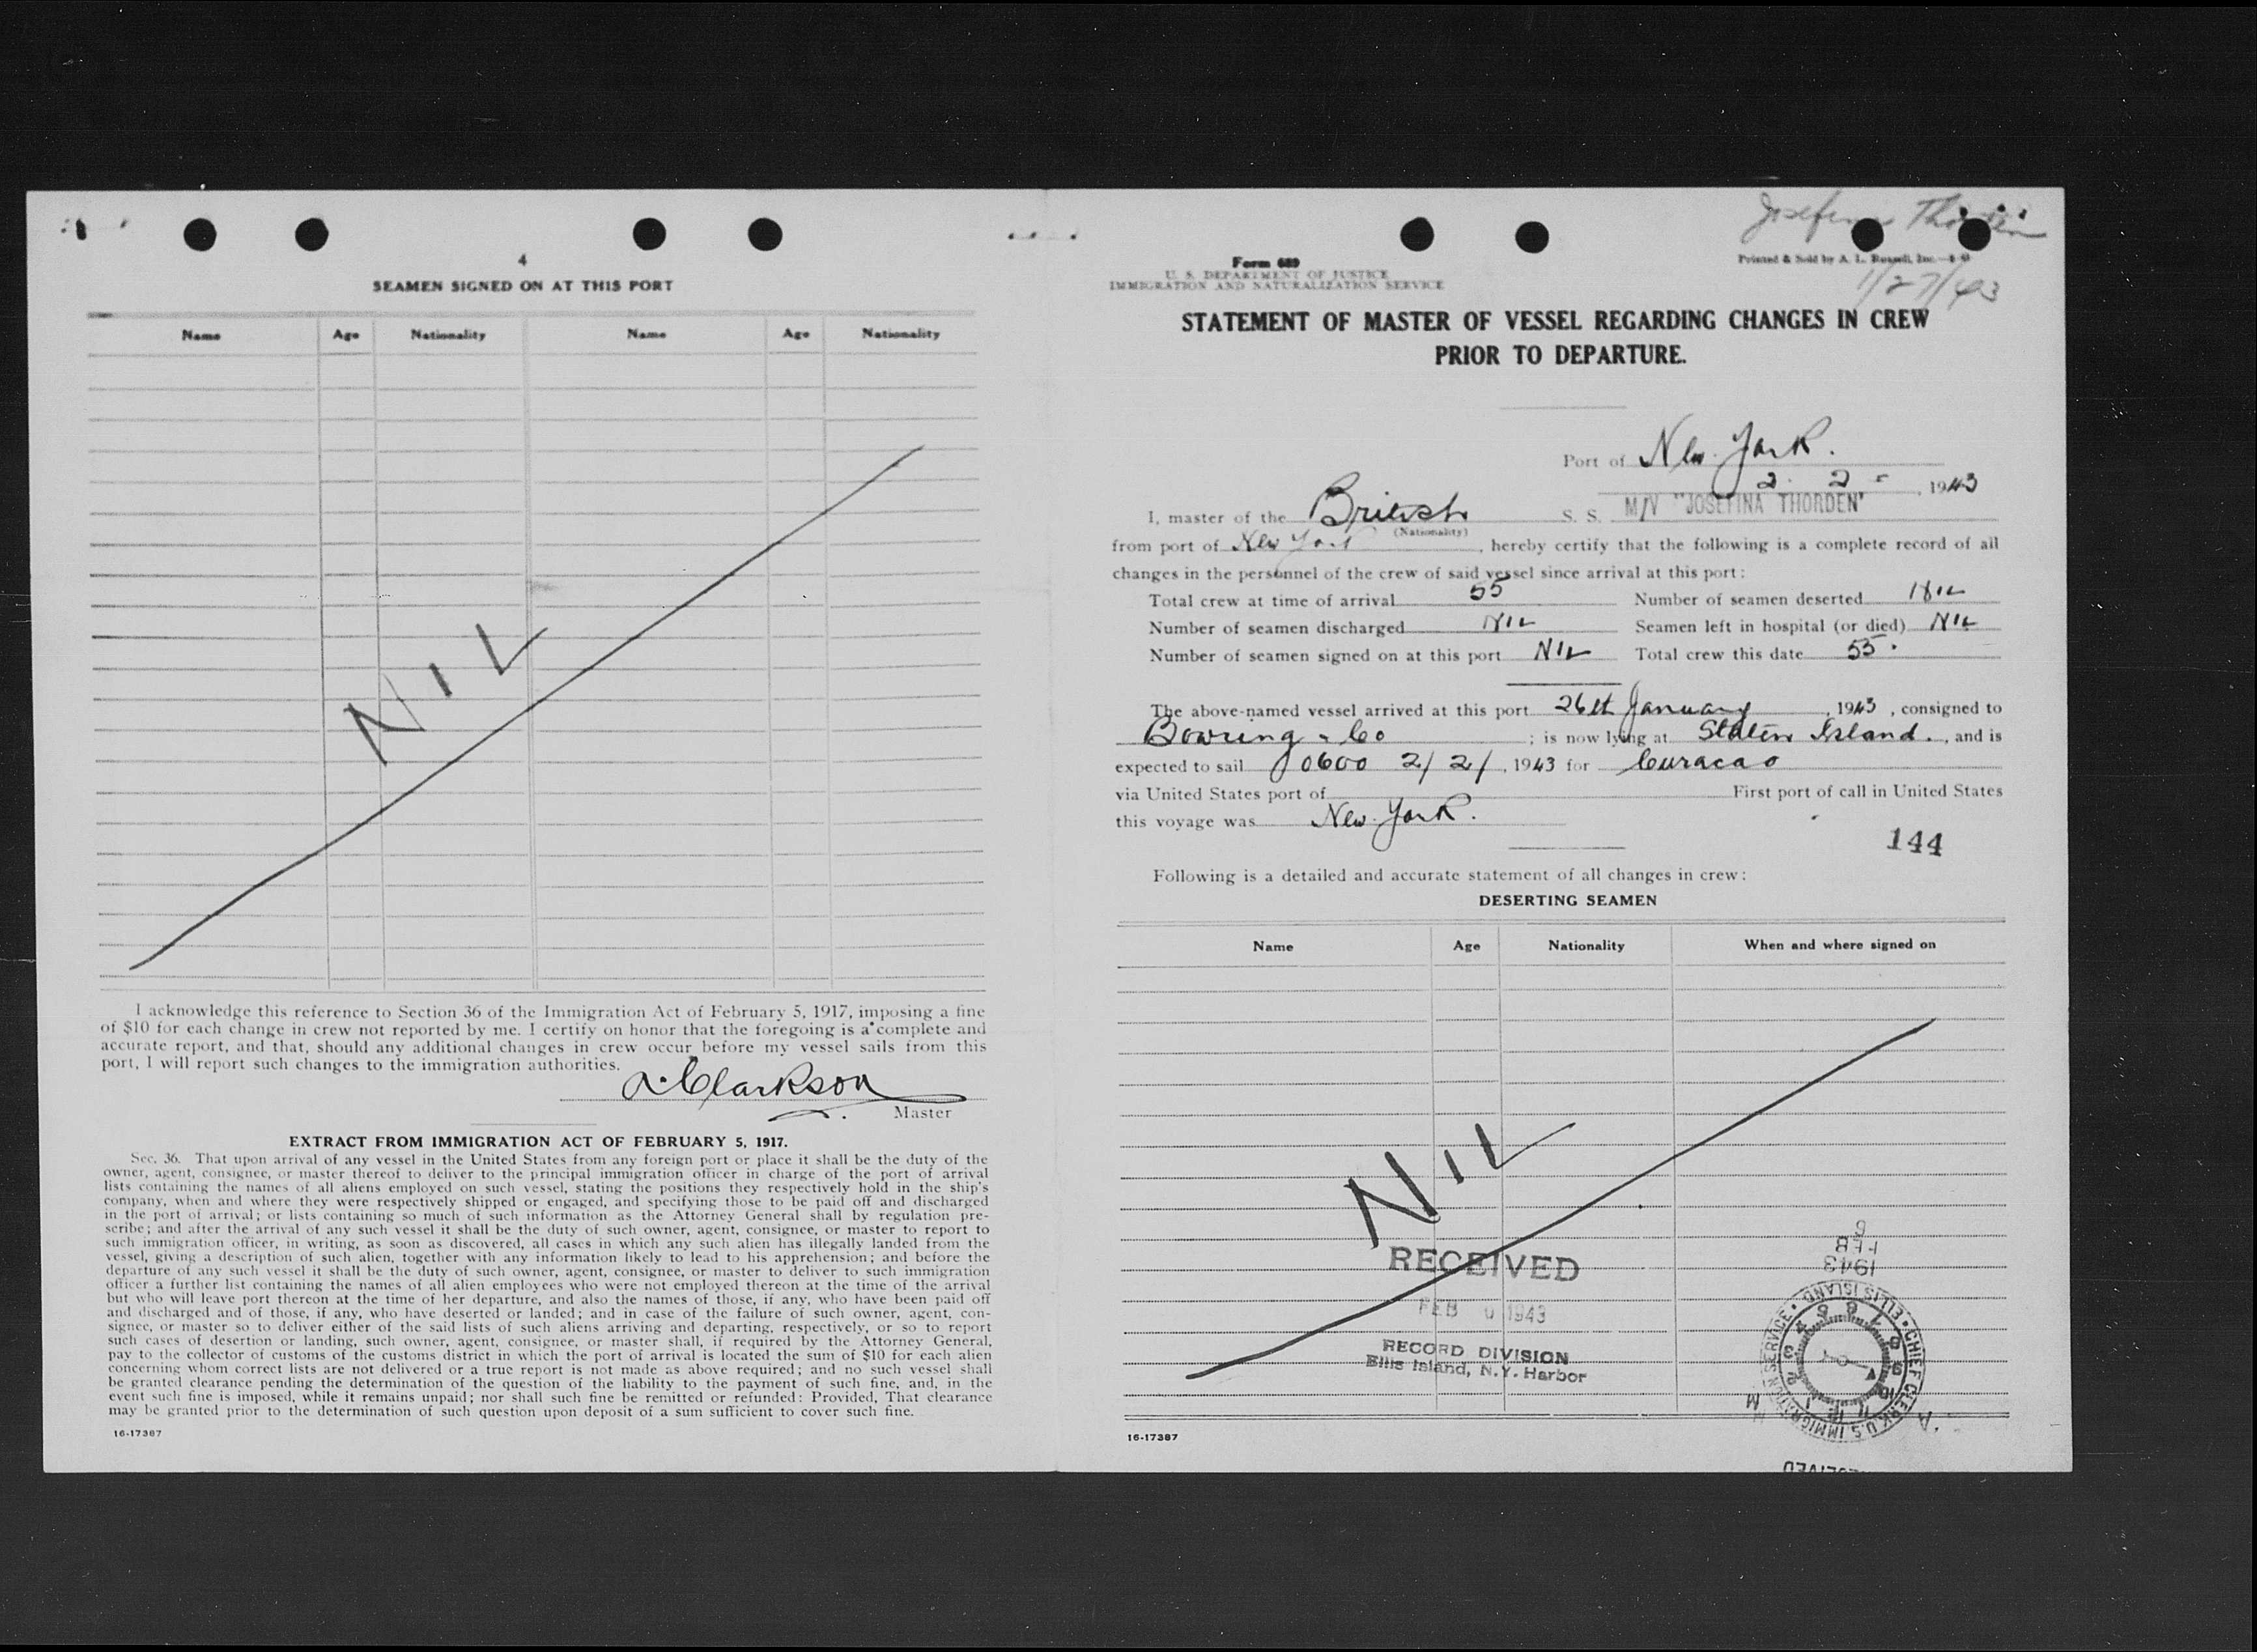 4
SEAMEN SIGNED ON AT THIS PORT
Name Age Nationality Name Age Nationality
NIL
I acknowledge this reference to Section 36 of the Immigration Act of February 5, 1917, imposing a fine
of $10 for each change in crew not reported by me. I certify on honor that the foregoing is a complete and
accurate report, and that, should any additional changes in crew occur before my vessel sails from this
port, I will report such changes to the immigration authorities.
A. Clarkson
Master
EXTRACT FROM IMMIGRATION ACT OF FEBRUARY 5, 1917.
Sec. 36. That upon arrival of any vessel in the United States from any foreign port or place it shall be the duty of the
owner, agent, consignee, or master thereof to deliver to the principal immigration officer in charge of the port of arrival
lists containing the names of all aliens employed on such vessel, stating the positions they respectively hold in the ship's
company, when and where they were respectively shipped or engaged, and specifying those to be paid off and discharged
in the port of arrival; or lists containing so much of such information as the Attorney General shall by regulation pre-
scribe; and after the arrival of any such vessel it shall be the duty of such owner, agent, consignee, or master to report to
such immigration officer, in writing, as soon as discovered, all cases in which any such alien has illegally landed from the
vessel, giving a description of such alien, together with any information likely to lead to his apprehension; and before the
departure of any such vessel it shall be the duty of such owner, agent, consignee, or master to deliver to such immigration
officer a further list containing the names of all alien employees who were not employed thereon at the time of the arrival
but who will leave port thereon at the time of her departure, and also the names of those, if any, who have been paid off
and discharged and of those, if any, who have deserted or landed; and in case of the failure of such owner, agent, con-
signee, or master so to deliver either of the said lists of such aliens arriving and departing, respectively, or so to report
such cases of desertion or landing, such owner, agent, consignee, or master shall, if required by the Attorney General,
pay to the collector of customs of the customs district in which the port of arrival is located the sum of $10 for each alien
concerning whom correct lists are not delivered or a true report is not made as above required; and no such vessel shall
be granted clearance pending the determination of the question of the liability to the payment of such fine, and, in the
event such fine is imposed, while it remains unpaid; nor shall such fine be remitted or refunded: Provided, That clearance
may be granted prior to the determination of such question upon deposit of a sum sufficient to cover such fine.
16-17387
Josefina Thorden
Form 689
Printed & Sold by A. L. Russell, Inc.
U. S. DEPARTMENT OF JUSTICE
IMMIGRATION AND NATURALIZATION SERVICE
1/27/43
STATEMENT OF MASTER OF VESSEL REGARDING CHANGES IN CREW
PRIOR TO DEPARTURE.
Port of New York.
2. 2 - , 1943
I, master of the British S. S. M/V "JOSEFINA THORDEN"
(Nationality)
from port of New York , hereby certify that the following is a complete record of all
changes in the personnel of the crew of said vessel since arrival at this port:
Total crew at time of arrival 55 Number of seamen deserted NIL
Number of seamen discharged NIL Seamen left in hospital (or died) NIL
Number of seamen signed on at this port NIL Total crew this date 55.
The above-named vessel arrived at this port 26th January , 1943 , consigned to
Bowring & Co ; is now lying at Staten Island. , and is
expected to sail 0600 2/2/ , 1943 for Curacao
via United States port of First port of call in United States
this voyage was New York.
144
Following is a detailed and accurate statement of all changes in crew:
DESERTING SEAMEN
Name Age Nationality When and where signed on
NIL
RECEIVED
FEB 1943
RECORD DIVISION
Ellis Island, N.Y. Harbor
1943
FEB
CHIEF CLERK U.S. IMMIGRATION SERVICE • ELLIS ISLAND •
16-17387
RECEIVED